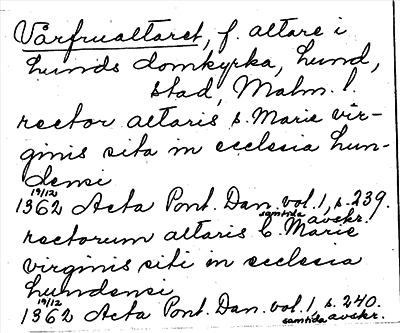 Vårfrualtaret, f. altare i
Lunds domkyrka, Lund,
stad, Malm. l.
rector altaris s. Marie vir-
ginis sita in ecclesia Lun-
densi
19/12
1362 Acta Pont. Dan. vol. 1, s. 239.
samtida avskr.
rectorum altaris b. Marie
virginis siti in ecclesia
Lundensi
19/12
1362 Acta Pont. Dan. vol. 1, s. 240.
samtida avskr.